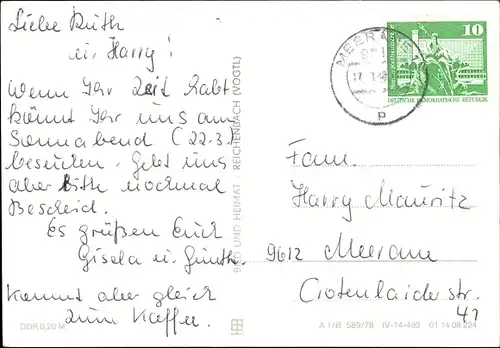 Liebe Ruth
u. Harry!
Wenn Ihr Zeit habt
könnt Ihr uns am
Sonnabend (22.3.)
besuchen. Gebt uns
aber bitte nochmal
Bescheid.
Es grüßen Euch
Gisela u. Günth.
Kommt aber gleich
zum Kaffee.
DDR 0,20 M
BILD UND HEIMAT · REICHENBACH (VOGTL)
MEERANE
10
DEUTSCHE DEMOKRATISCHE REPUBLIK
p
Fam.
Harry Mauritz
9612 Meerane
Crotenlaider str.
41
A 1/B 589/78 IV-14-483 01 14 08 224